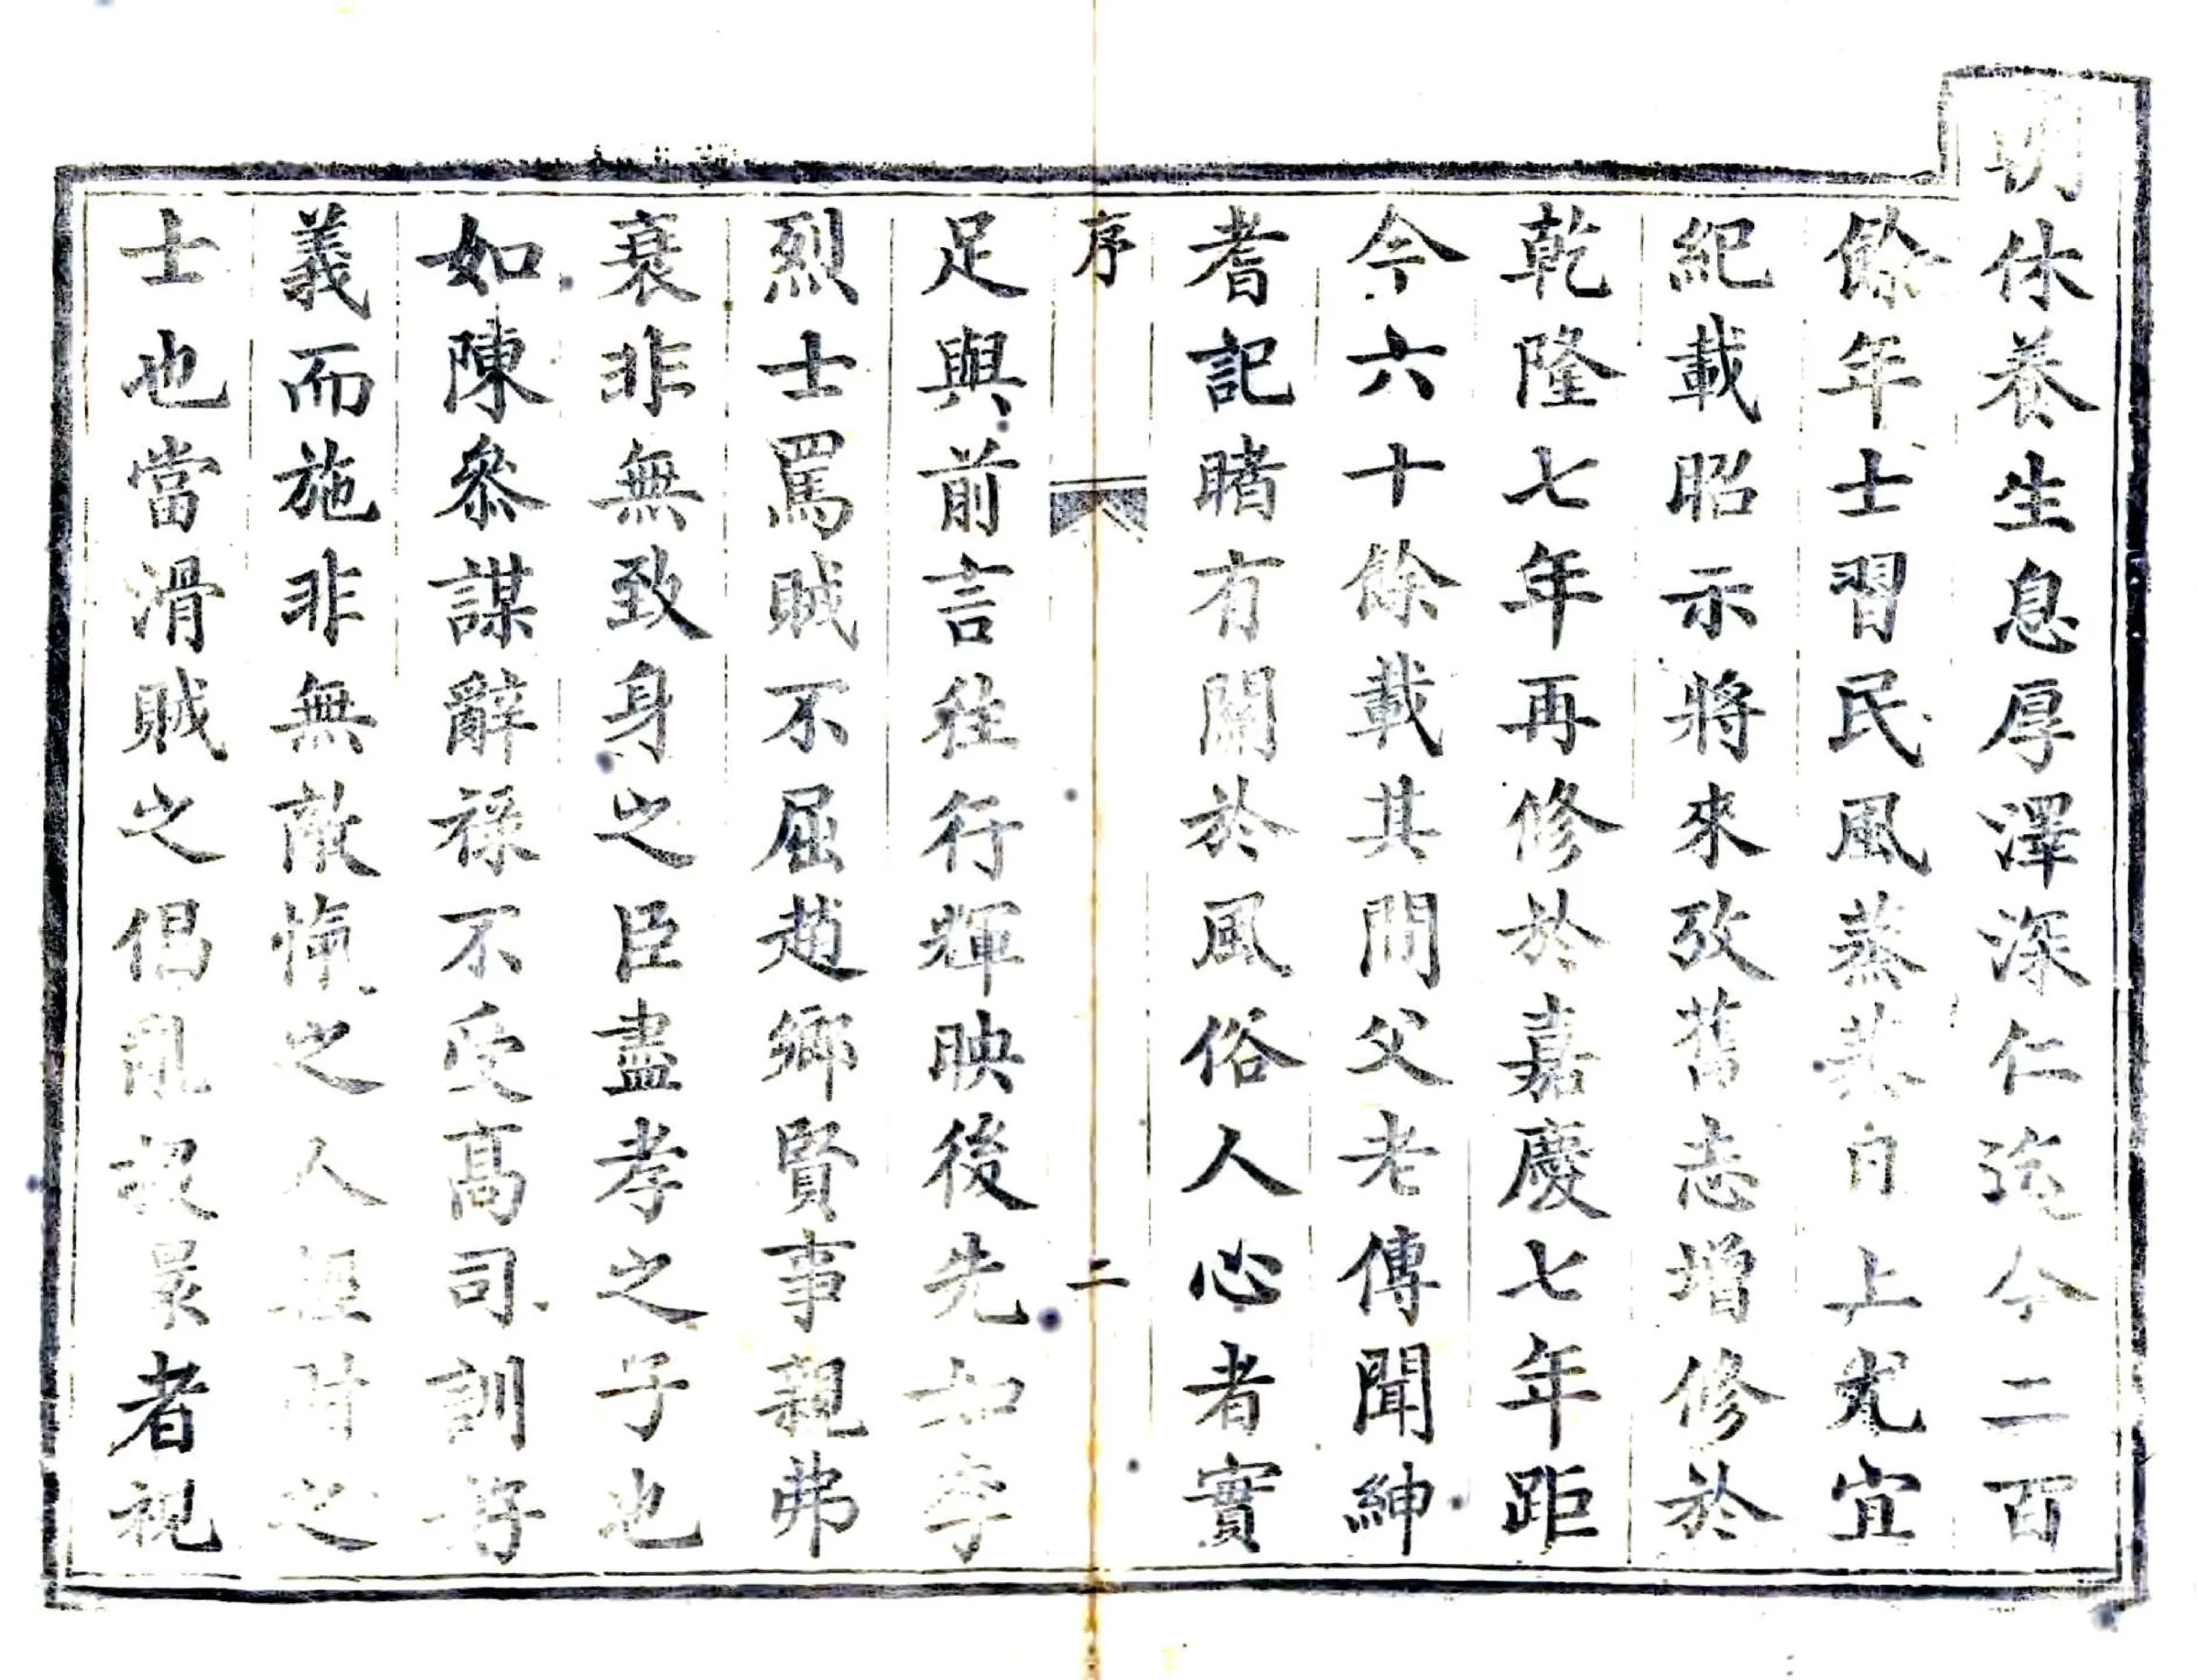 朝休養生息厚澤深仁迄今二百
餘年士習民風蒸蒸日上尤宜
紀載昭示將來攷舊志增修於
乾隆七年再修於嘉慶七年距
今六十餘載其間父老傳聞紳
耆記睹有關於風俗人心者實
序
二
足與前言往行輝映後先如李
烈士罵賊不屈趙鄉賢事親弗
衰非無致身之臣盡孝之子也
如陳叅謀辭祿不受高司訓好
義而施非無敵愾之人濟時之
士也當滑賊之倡亂設景者視